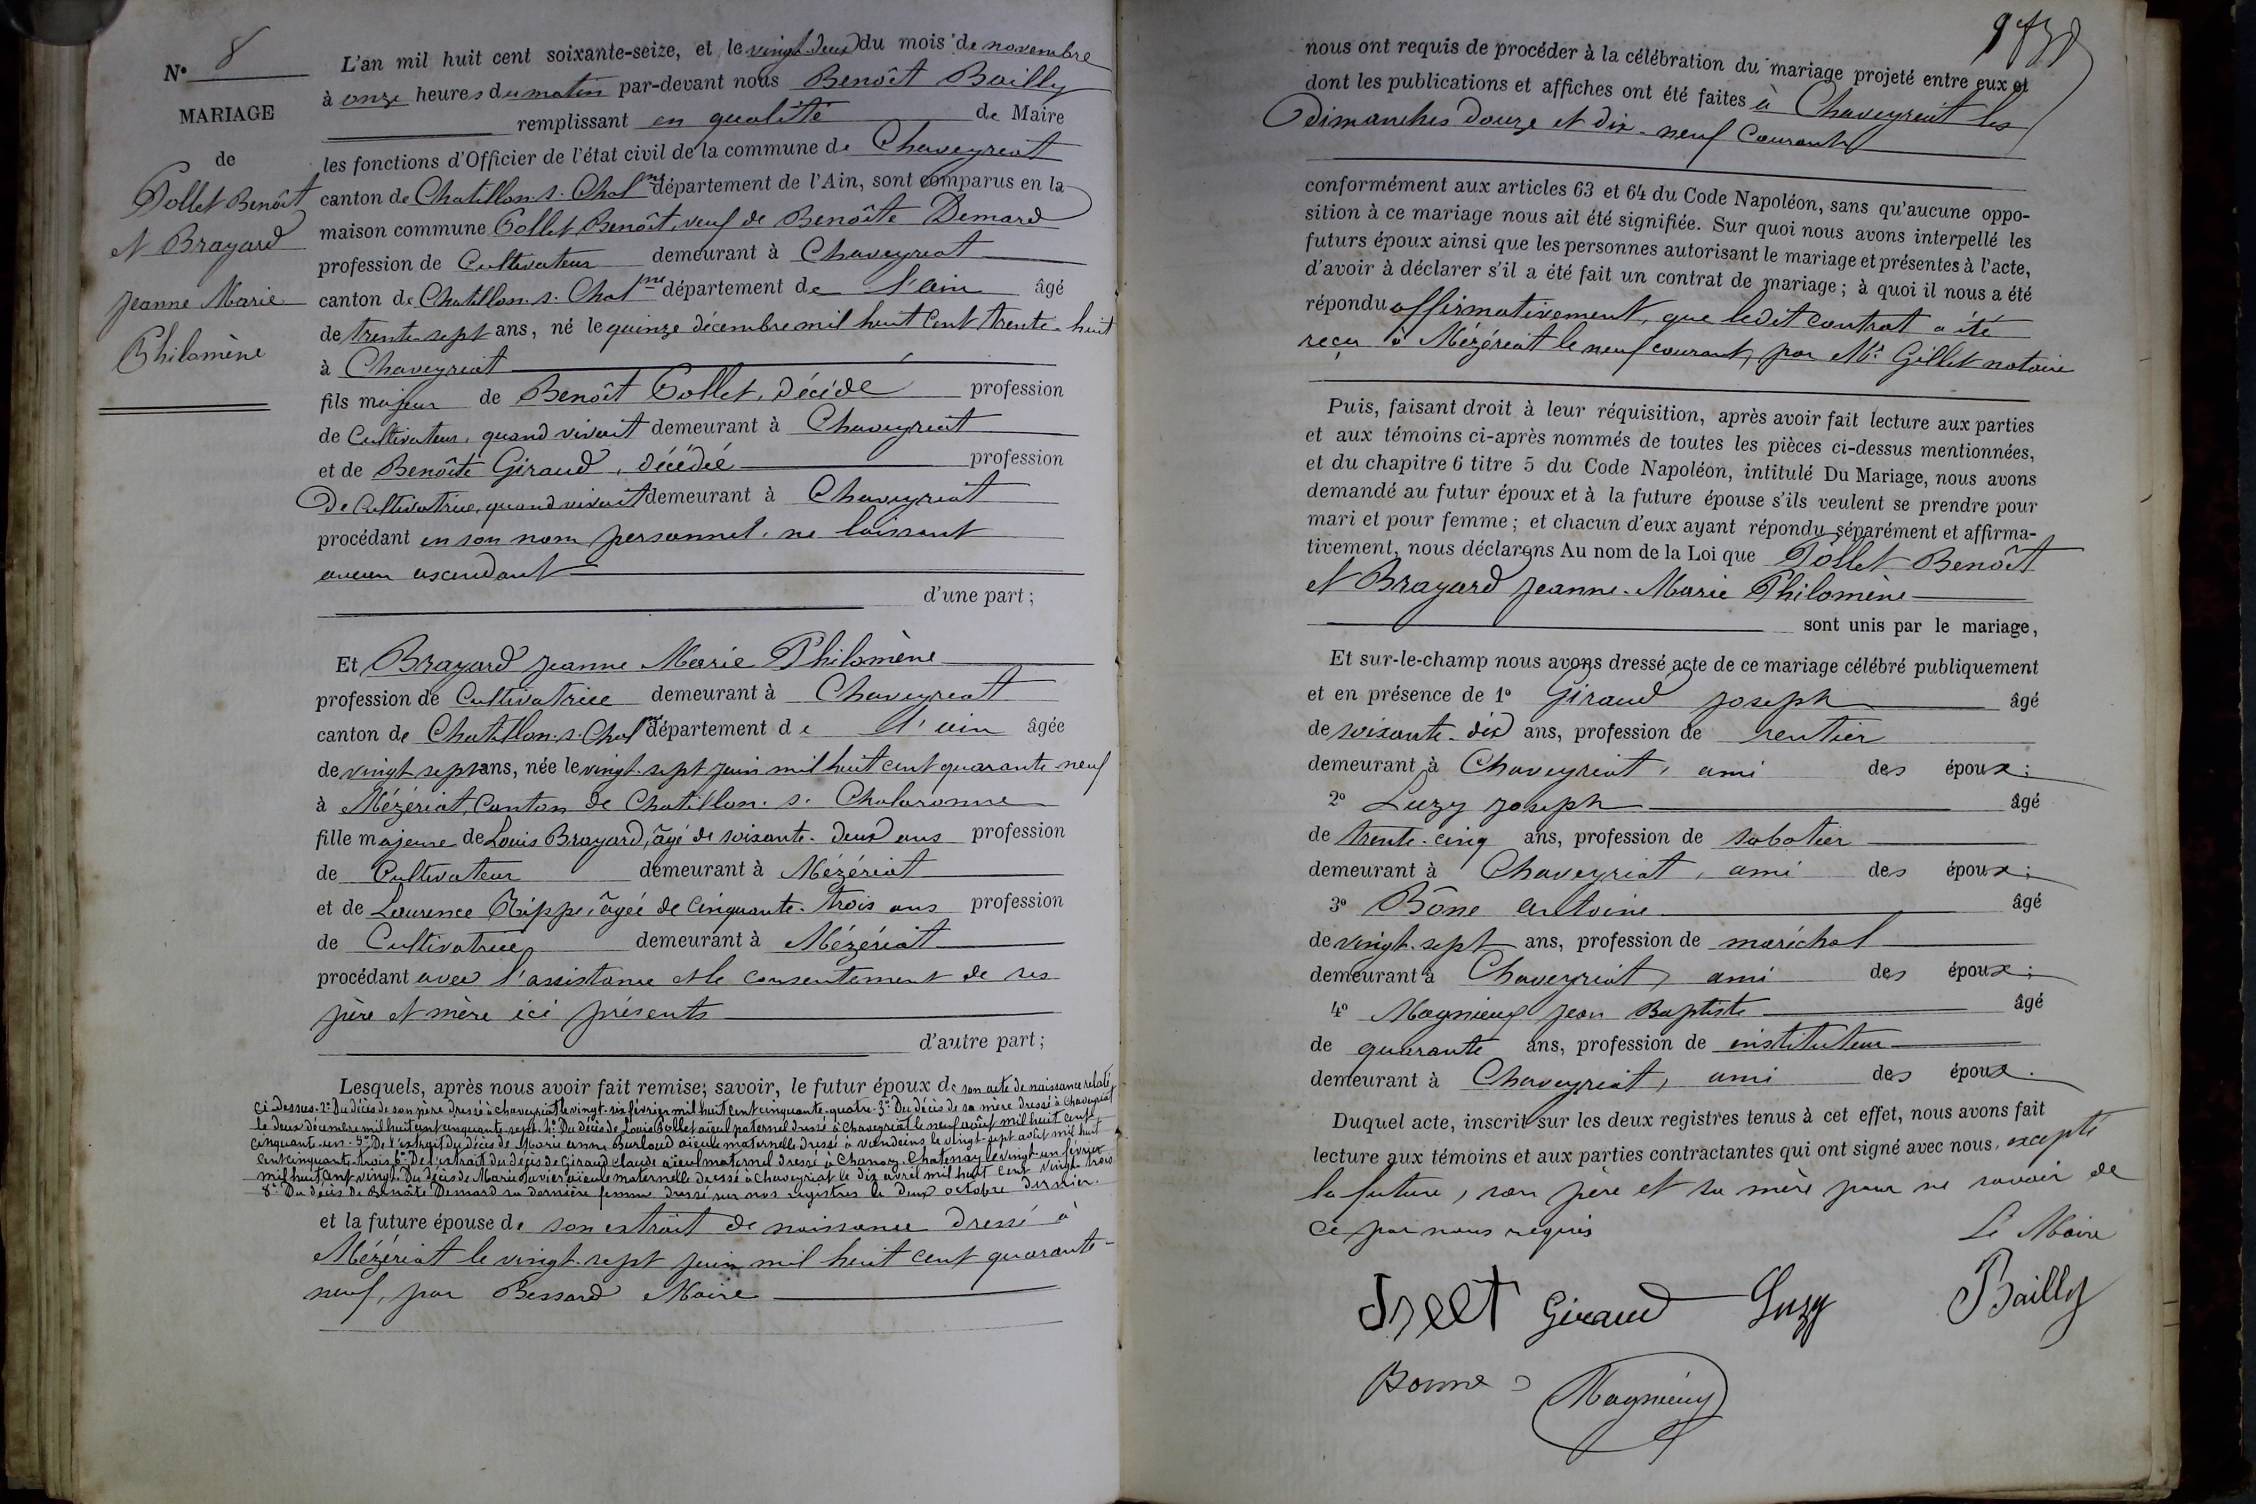 N° 8
MARIAGE
de
Pollet Benoît
et Brayard
Jeanne Marie
Philomène
L'an mil huit cent soixante-seize, et le vingt-deux du mois de novembre
à onze heures du matin par-devant nous Benoît Bailly
remplissant en qualité de Maire
les fonctions d'Officier de l'état civil de la commune de Chaveyriat
canton de Chatillon s. Chal.ne département de l'Ain, sont comparus en la
maison commune Pollet Benoît, veuf de Benoîte Demard
profession de Cultivateur demeurant à Chaveyriat
canton de Chatillon. s. Chal.ne département de l'ain âgé
de trente-sept ans, né le quinze décembre mil huit cent trente-huit
à Chaveyriat
fils majeur de Benoît Pollet, décédé profession
de Cultivateur, quand vivait demeurant à Chaveyriat
et de Benoîte Giraud, décédée profession
De Cultivatrice, quand vivait demeurant à Chaveyriat
procédant en son nom personnel, ne laissant
aucun ascendant
d'une part;
Et Brayard Jeanne Marie Philomène
profession de Cultivatrice demeurant à Chaveyriat
canton de Chatillon. s. Chal.ne département de l'ain âgée
de vingt sept ans, née le vingt-sept juin mil huit cent quarante-neuf
à Mézériat, Canton de Chatillon. s. Chalaronne
fille majeure de Louis Brayard, âgé de soixante-deux ans profession
de Cultivateur demeurant à Mézériat
et de Laurence Rippe, âgée de cinquante-trois ans profession
de Cultivatrice demeurant à Mézériat
procédant avec l'assistance et le consentement de ses
père et mère ici présents
d'autre part;
Lesquels, après nous avoir fait remise; savoir, le futur époux de son acte de naissance relaté
ci-dessus. 2° Du décès de son père dressé à Chaveyriat le vingt-six février mil huit cent cinquante-quatre. 3° Du décès de sa mère dressé à Chaveyriat
le deux décembre mil huit cent cinquante-sept. 4° Du décès de Louis Pollet aïeul paternel dressé à Chaveyriat le neuf août mil huit cent
cinquante-un. 5° De l'extrait du décès de Marie Anne Burloud aïeule maternelle dressé à Vandeins le vingt-sept août mil huit
cent cinquante-trois. 6° De l'extrait du décès de Giraud Claude aïeul maternel dressé à Chanoz-Chatenay le vingt-un février
mil huit cent vingt. Du décès de Marie aïeule maternelle dressé à Chaveyriat le dix avril mil huit cent vingt-trois
8° Du décès de Benoîte Demard sa dernière femme dressé sur nos registres le deux octobre dernier.
et la future épouse de son extrait de naissance dressé à
Mézériat le vingt-sept juin mil huit cent quarante-
neuf, par Bessard Maire
nous ont requis de procéder à la célébration du mariage projeté entre eux et
dont les publications et affiches ont été faites à Chaveyriat les
dimanches douze et dix-neuf Courant
conformément aux articles 63 et 64 du Code Napoléon, sans qu'aucune oppo-
sition à ce mariage nous ait été signifiée. Sur quoi nous avons interpellé les
futurs époux ainsi que les personnes autorisant le mariage et présentes à l'acte,
d'avoir à déclarer s'il a été fait un contrat de mariage; à quoi il nous a été
répondu affirmativement, que ledit contrat a été
reçu à Mézériat le neuf courant, par Me Gillet notaire
Puis, faisant droit à leur réquisition, après avoir fait lecture aux parties
et aux témoins ci-après nommés de toutes les pièces ci-dessus mentionnées,
et du chapitre 6 titre 5 du Code Napoléon, intitulé Du Mariage, nous avons
demandé au futur époux et à la future épouse s'ils veulent se prendre pour
mari et pour femme; et chacun d'eux ayant répondu séparément et affirma-
tivement, nous déclarons Au nom de la Loi que Pollet Benoît
et Brayard Jeanne-Marie Philomène
sont unis par le mariage,
Et sur-le-champ nous avons dressé acte de ce mariage célébré publiquement
et en présence de 1° Giraud Joseph âgé
de soixante-dix ans, profession de rentier
demeurant à Chaveyriat, ami des époux;
2° Luzy Joseph âgé
de trente-cinq ans, profession de sabotier
demeurant à Chaveyriat, ami des époux;
3° Bône Antoine âgé
de vingt-sept ans, profession de maréchal
demeurant à Chaveyriat, ami des époux;
4° Magnieux Jean Baptiste âgé
de quarante ans, profession de instituteur
demeurant à Chaveyriat, ami des époux.
Duquel acte, inscrit sur les deux registres tenus à cet effet, nous avons fait
lecture aux témoins et aux parties contractantes qui ont signé avec nous, excepté
la future, son père et sa mère pour ne savoir de
ce par nous requis
Le Maire
Giraud Luzy Bailly
Bonne Magnieux